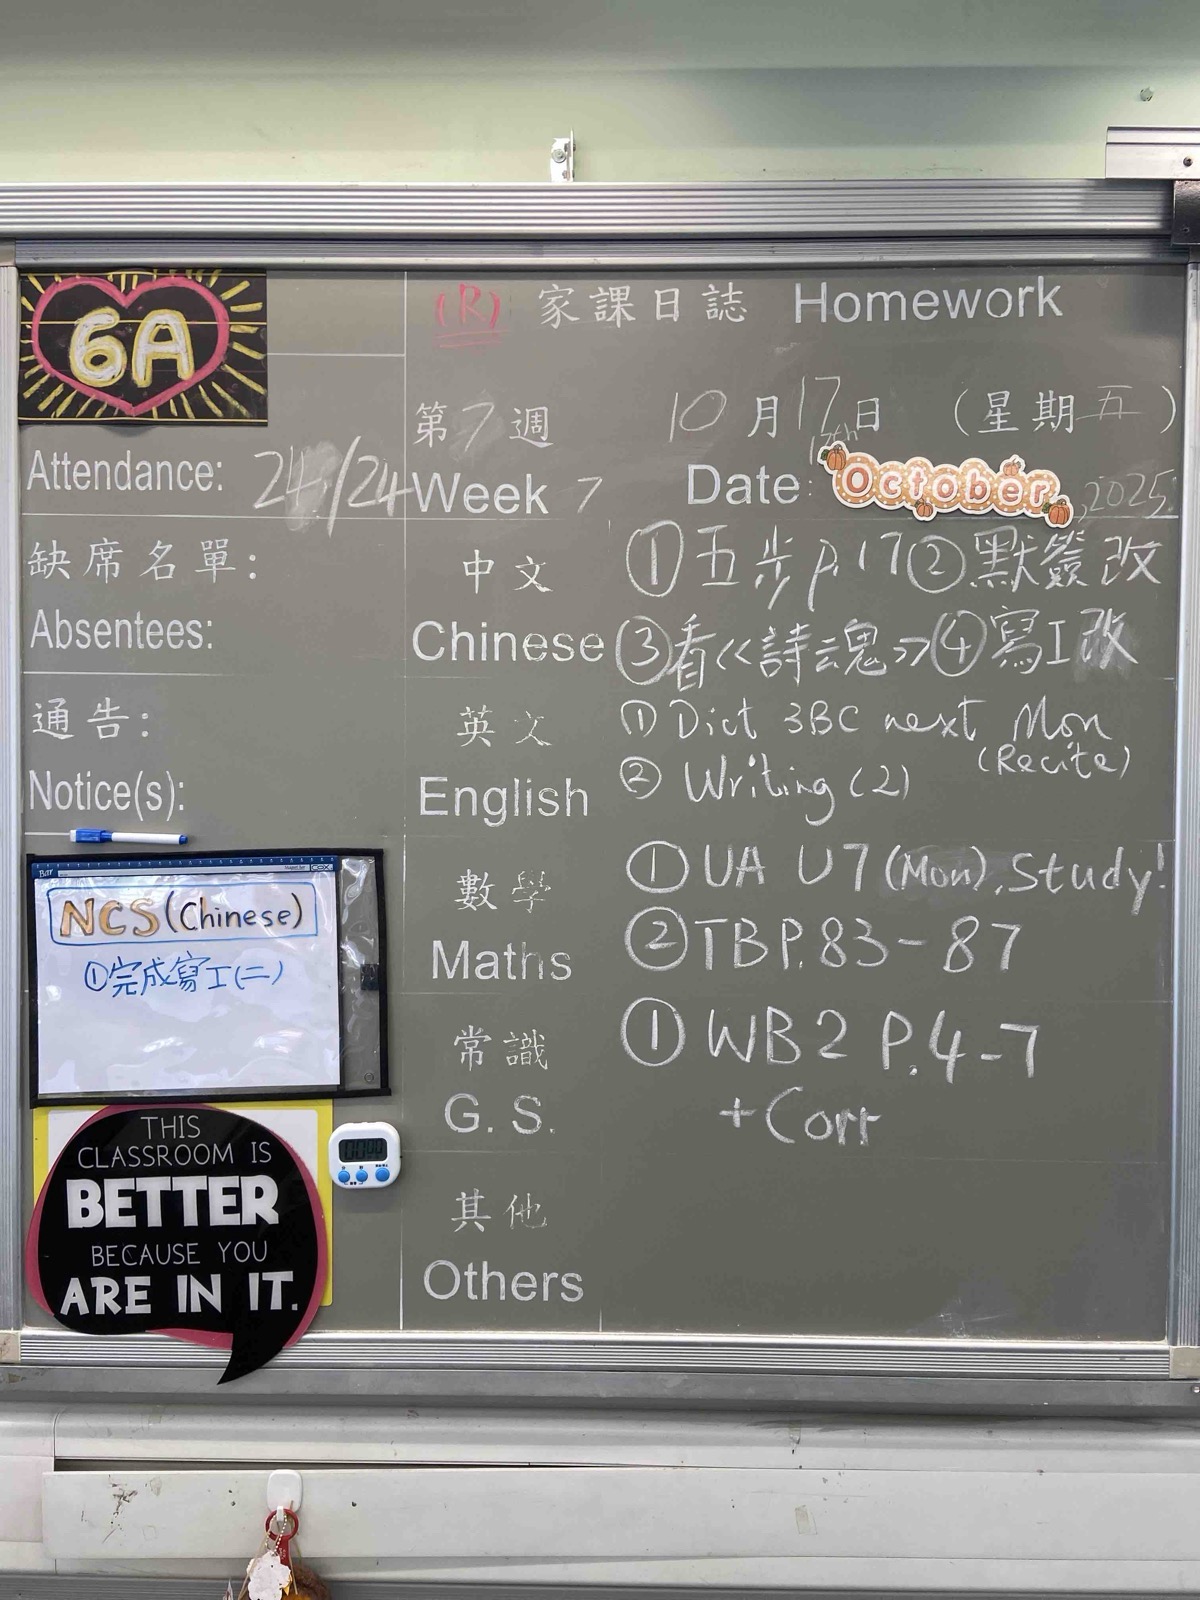 6A
(R) 家課日誌 Homework
第7週 10月17日 (星期五)
17th
Attendance: 24/24
Week 7 Date: October, 2025
缺席名單:
Absentees:
通告:
Notice(s):
中文
Chinese
①五步p.17②默簽改
③看《詩魂》④寫工改
英文
English
① Dict 3BC next Mon
(Recite)
② Writing (2)
數學
Maths
①UA U7(Mon),Study!
②TBP.83-87
常識
G. S.
① WB2 P.4-7
+Corr
其他
Others
NCS(Chinese)
①完成寫工(二)
THIS
CLASSROOM IS
BETTER
BECAUSE YOU
ARE IN IT.